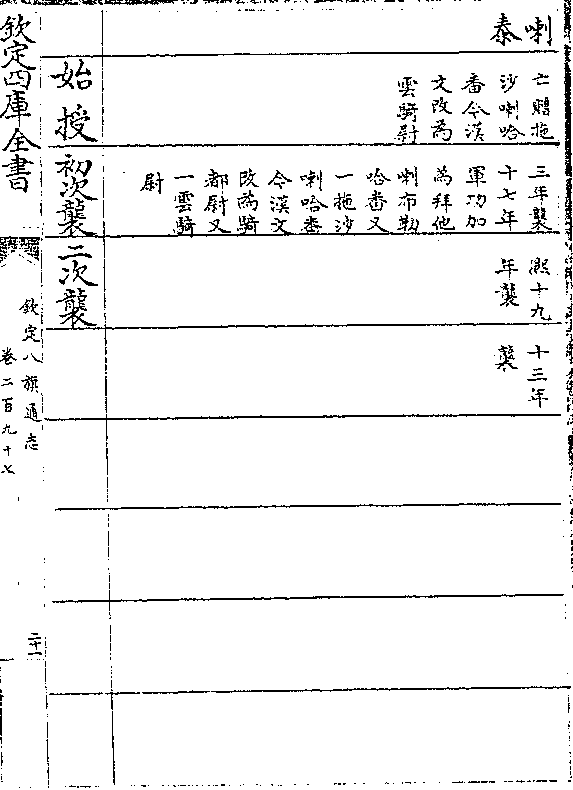 喇
泰
亡贈拖
沙喇哈
番今漢
文改為
雲騎尉
三年襲
十七年
軍功加
為拜他
喇布勒
哈番又
一拖沙
喇哈番
今漢文
改為騎
都尉又
一雲騎
尉
熙十九
年襲
十三年
襲
始授
初次襲
二次襲
欽定四庫全書
欽定八旗通志
卷二百九十七
二十一